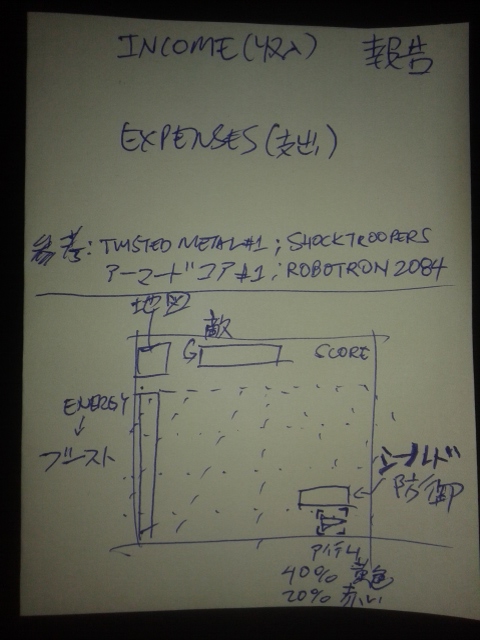 INCOME (収入) 報告
EXPENSES (支出)
参考: TWISTED METAL #1 ; SHOCK TROOPERS
アーマードコア #1 ; ROBOTRON 2084
地図
敵
G SCORE
ENERGY
ブースト
シールド
防御
アイテム
40% 黄色
20% 赤い